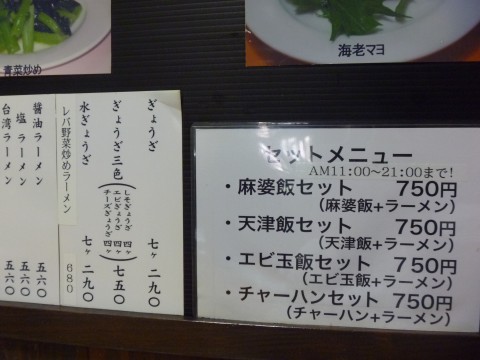 青菜炒め
海老マヨ
ぎょうざ 七ヶ 二九〇
ぎょうざ三色 七五〇
(しそぎょうざ 四ヶ
エビぎょうざ 四ヶ
チーズぎょうざ 四ヶ)
水ぎょうざ 七ヶ 二九〇
レバ野菜炒めラーメン 680
醤油ラーメン 五六〇
塩ラーメン 五六〇
台湾ラーメン 五六〇
セットメニュー
AM11:00~21:00まで!
・麻婆飯セット 750円
(麻婆飯+ラーメン)
・天津飯セット 750円
(天津飯+ラーメン)
・エビ玉飯セット 750円
(エビ玉飯+ラーメン)
・チャーハンセット 750円
(チャーハン+ラーメン)